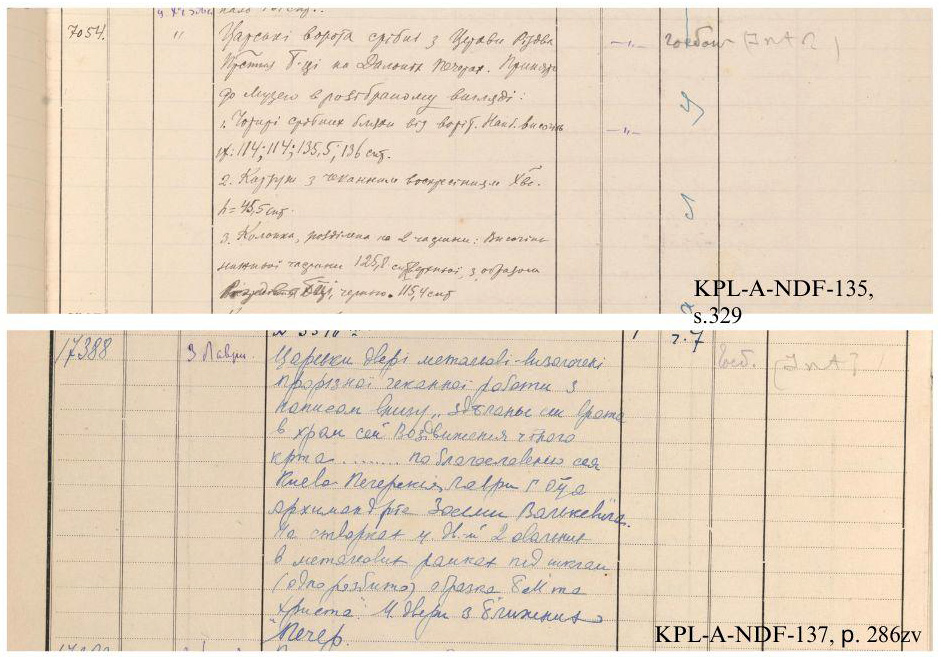 7054. " Царські ворота срібні з Церкви Різдва
Пречист. Б-ці на Дальніх печерах. Прийнято
до Музею в розібраному вигляді:
1. Чотирі срібних бляхи від воріт. Найб. висота
їх: 114; 114; 135,5; 136 см.
2. Картуш з чеканним воскресінням Хвс.
h = 45,5 см.
3. Колонка, розділена на 2 частини: Височіна
нижньої частини 125,8 см, верхньої, з образом
115,4 см
KPL-A-NDF-135,
s.329
ч. 7
17388 З Лаври. Царськи двері металеві-визолочені
прорізної чеканної роботи з
написом внизу „Здѣланы сии врата
в храм сей Воздвижения чтнаго
крта ........ по благословению сея
Киево Печерския Лаври Г. Отца
архимандрта Зосими Валкевича.
На створках ц. дв-й 2 овальних
в металевих рамках під шклом
(одно розбито) образка БМ та
Христа. Ц. двери з Ближених
Печер.
KPL-A-NDF-137, p. 286zv